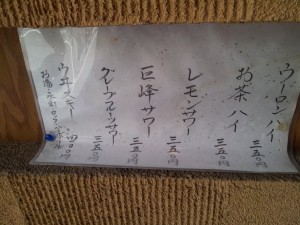 ウーロンハイ 三五〇円
お茶ハイ 三五〇円
レモンサワー 三五〇円
巨峰サワー 三五〇円
グレープフルーツサワー 三五〇円
ウイスキー 四〇〇円